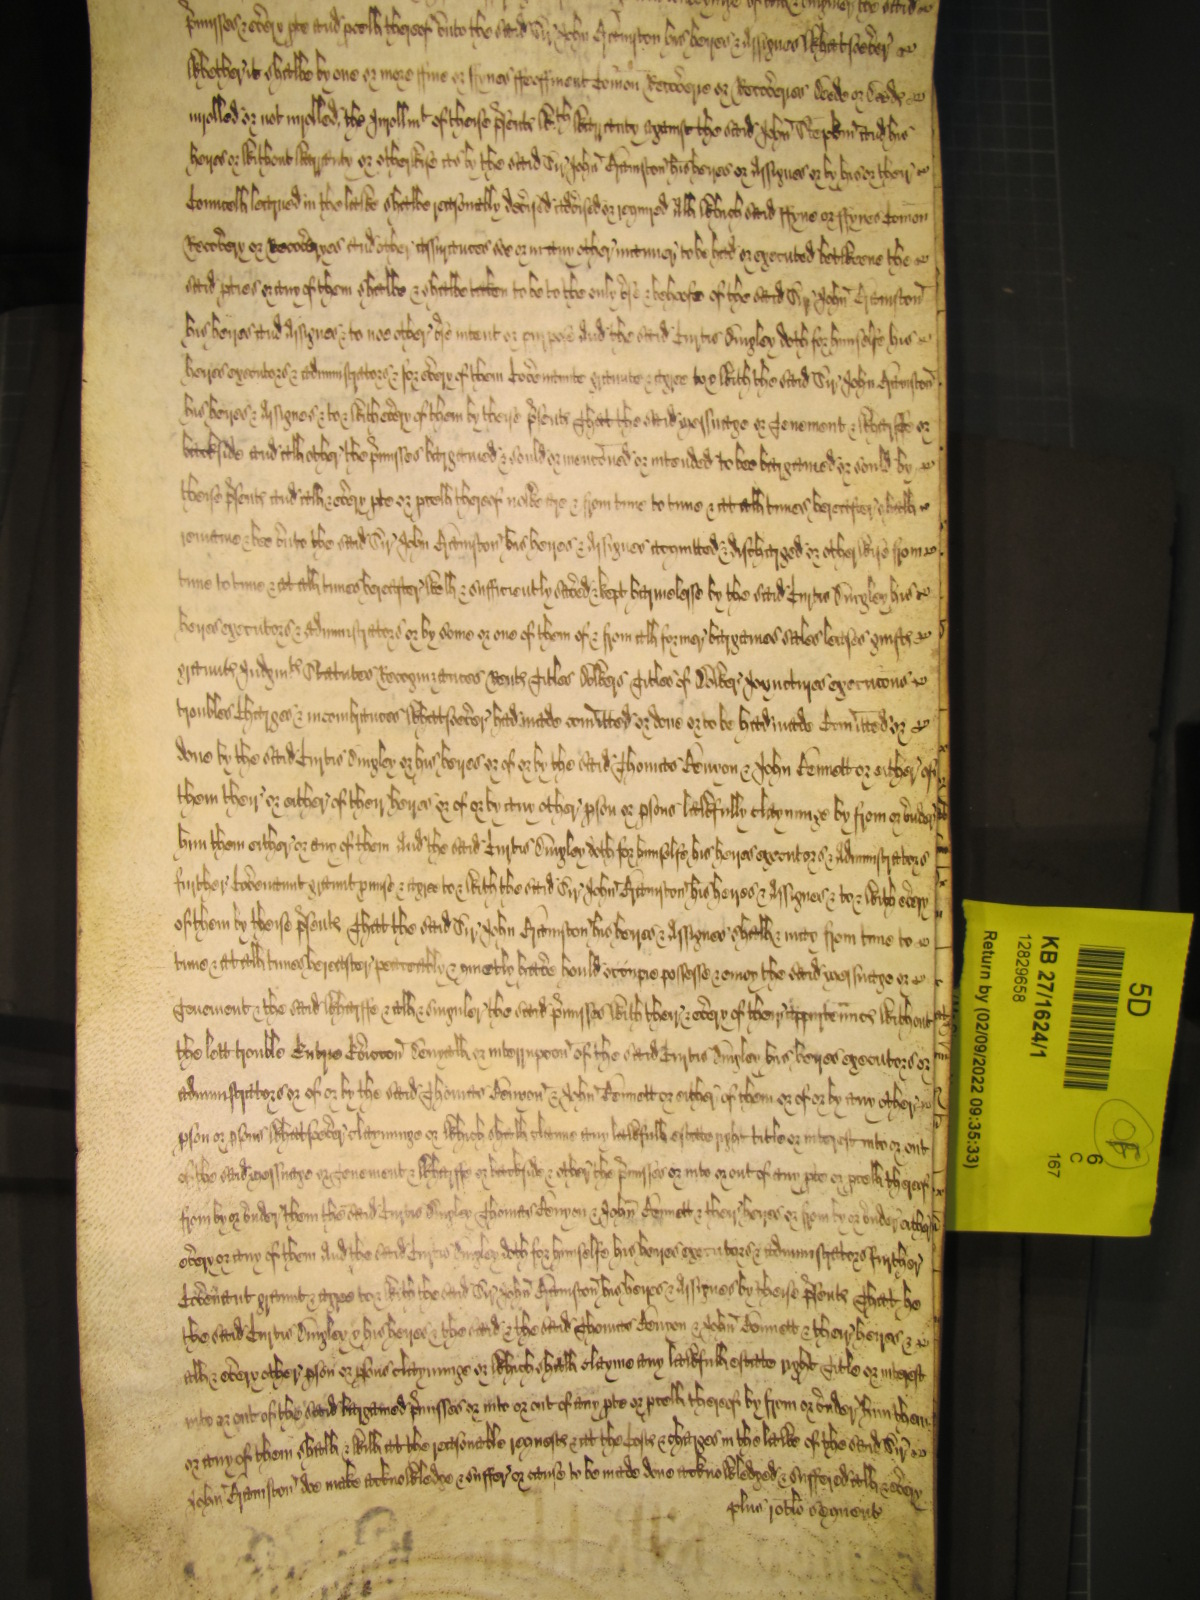 the said
p'misses & every pte and pcell thereof unto the said Sir John Ramston his heyres & Assignes Whatsoever
Whether it shalbe by one or more ffine or ffynes ffeoffment Comon Recoverie or Recoveries Deede or Deeds
inrolled or not inrolled, the Inrollmt of theise p'sents Wth Warranty against the said John Stepkin and his
heyres or Without Warranty or otherwise as by the said Sir John Ramston his heyres or Assignes or by his or their
Councell learned in the lawe shalbe reasonably devised advised or required All Which said ffyne or ffynes Comon
Recovery or Recoveryes and other assurances soe or in any other manner to be had or executed betweene the
said pties or any of them shalbe & shalbe taken to be to the only use & behoofe of the said Sir John Ramston
his heyres and Assignes & to noe other use intent or purpose And the said Curtis Dingley doth for himselfe his
heyres executors & administrators & for every of them Covennte graunte & agree to & With the said Sir John Ramston
his heyres & Assignes & to & With every of them by theise p'sents That the said messuage or Tenement & Wharffe or
backside and all other the p'misses bargained & sould or mencioned or intended to bee bargained or sould by
theise p'sents and all & every pte or pcell thereof nowe are & from time to time & att all times hereafter shall
remaine & bee unto the said Sir John Ramston his heyres & Assignes acquitted & discharged or otherwise from
time to time & at all times hereafter Well & sufficiently saved & kept harmelesse by the said Curtis Dingley his
heyres executors & administrators or by some or one of them of & from all former bargaines sales leases guifts
graunts Judgmts Statutes Recognizances Rents Titles Dowers Titles of Dower Joynctures execucons
troubles Charges & incombrances Whatsoever had made comitted or done or to be had made Comitted or
done by the said Curtis Dingley or his heyres or of or by the said Thomas Kenyon & John Bennett or either of
them their or either of their heyres or of or by any other pson or psons lawfully clayminge by from or under
him them either or any of them And the said Curtis Dingley doth for himselfe his heyres executors & Administrators
further Covennant graunt pmise & agree to & With the said Sir John Ramston his heyres & Assignes & to & With every
of them by theise p'sents That the said Sir John Ramston his heyres & Assignes shall & may from time to
time & at all times hereafter peaceably & quietly have hould occupie possesse & enioy the said messuage or
Tenement & the said Wharffe & all & singuler the said p'misses With their & every of their appurtennces Without
the lett trouble Entrie Evicon Denyall or interrupcon of the said Curtis Dingley his heyres executors or
administrators or of or by the said Thomas Kenyon & John Bennett or either of them or of or by any other
pson or psons Whatsoever clayminge or Which shall clayme any lawfull estate right title or interest into or out
of the said messuage or Tenement & Wharffe or backside & other the p'misses or into or out of any pte or pcell thereof
from by or under them the said Curtis Dingley Thomas Kenyon & John Bennett & their heyres or from by or under either
every or any of them And the said Curtis Dingley doth for himselfe his heyres executors & administrators further
Covennant graunt & agree to & With the said Sir John Ramston his heyres & Assignes by theise p'sents That he
the said Curtis Dingley & his heyres & the said & the said Thomas Kenyon & John Bennett & their heyres &
all & every other pson or psons clayminge or Which shall clayme any lawfull estate right Title or interest
into or out of the said bargained p'misses or into or out of any pte or pcell thereof by from or under him them
or any of them shall & Will at the reasonable request & at the Costs & charges in the lawe of the said Sir
John Ramston doe make acknowledge & suffer or cause to be made done acknowledged & suffered all & every
plus rotlo sequente
5D
KB 27/1624/1
12829658
Return by (02/09/2022 09:35:33)
6
C
167